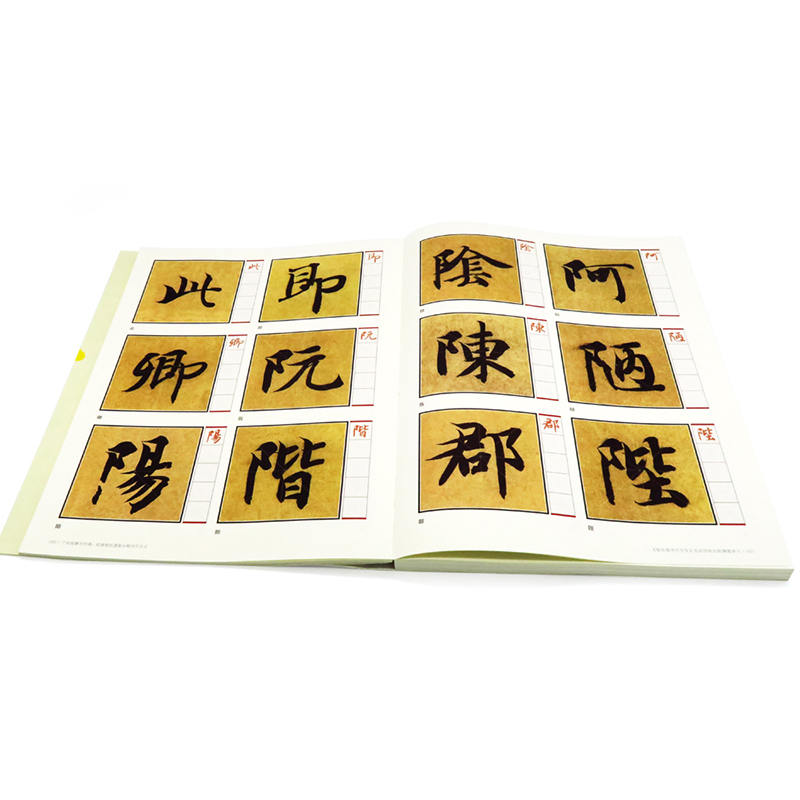 此 此 即 即
卿 卿 阮 阮
陽 陽 階 階
陰 陰 阿 阿
陳 陳 陋 陋
郡 郡 陛 陛